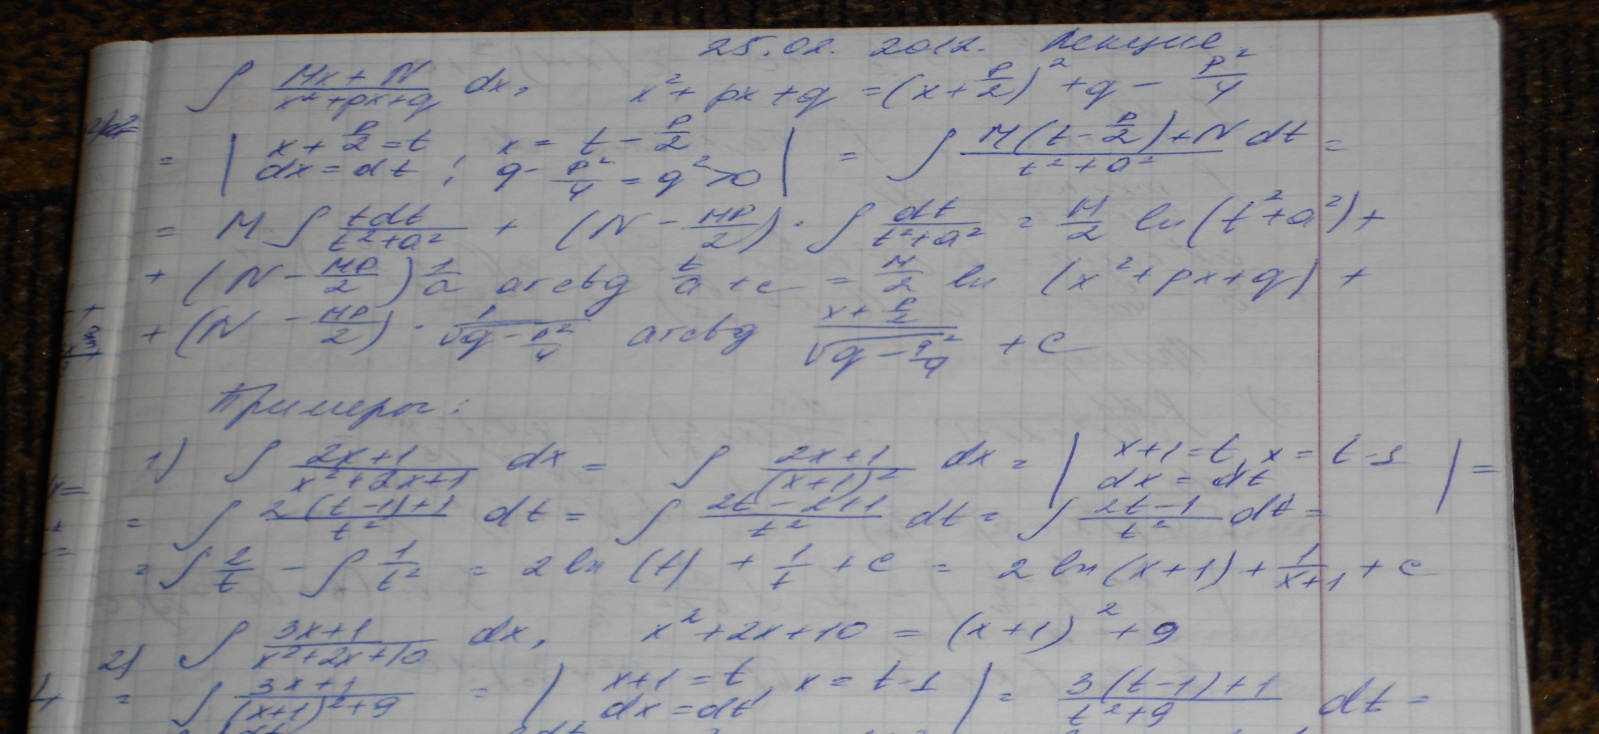 25.02.2012. Лекция
∫ (Mx+N)/(x²+px+q) dx, x²+px+q = (x+p/2)² + q − p²/4
= | x+p/2=t ; x = t − p/2 ; dx=dt ; q − p²/4 = q²>0 | = ∫ (M(t−p/2)+N)/(t²+a²) dt =
= M ∫ tdt/(t²+a²) + (N − MP/2) · ∫ dt/(t²+a²) = M/2 ln(t²+a²) +
+ (N − MP/2) 1/a arctg t/a + c = M/2 ln (x²+px+q) +
+ (N − MP/2) · 1/√(q−p²/4) arctg (x+p/2)/√(q−p²/4) + c
Примеры:
1) ∫ (2x+1)/(x²+2x+1) dx = ∫ (2x+1)/(x+1)² dx = | x+1=t, x=t−1 dx=dt | =
= ∫ (2(t−1)+1)/t² dt = ∫ (2t−2+1)/t² dt = ∫ (2t−1)/t² dt =
= ∫ 2/t − ∫ 1/t² = 2 ln (t) + 1/t + c = 2 ln (x+1) + 1/(x+1) + c
2) ∫ (3x+1)/(x²+2x+10) dx, x²+2x+10 = (x+1)² + 9
= ∫ (3x+1)/((x+1)²+9) = | x+1=t, x=t−1 dx=dt | = (3(t−1)+1)/(t²+9) dt =